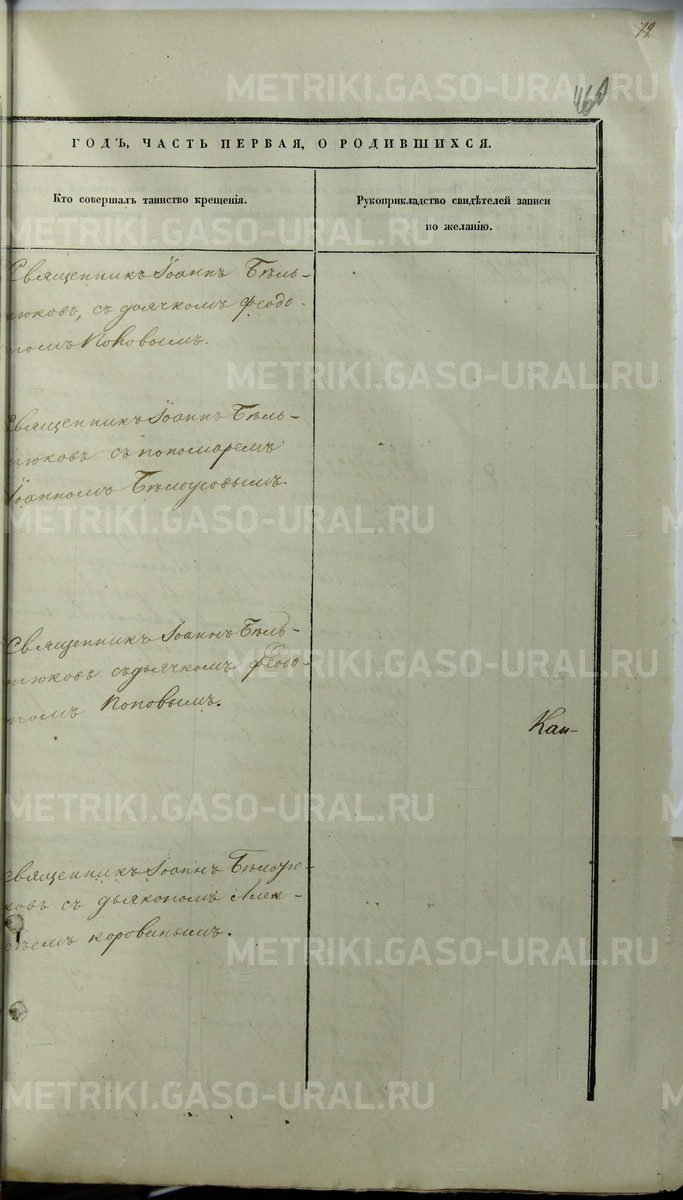 12
460
ГОДЪ, ЧАСТЬ ПЕРВАЯ, О РОДИВШИХСЯ.
Кто совершалъ таинство крещенія.
Рукоприкладство свидѣтелей записи
по желанію.
Священникъ Іоаннъ Бѣль-
тюковъ, съ дьячкомъ Ѳеодо-
томъ Поповымъ.
Священникъ Іоаннъ Бѣль-
тюковъ съ пономаремъ
Іоанномъ Бѣлоусовымъ.
Священникъ Іоаннъ Бѣль-
тюковъ съ дьячкомъ Ѳеодо-
томъ Поповымъ.
Кан-
Священникъ Іоаннъ
ковъ съ дьякономъ Алек-
сѣемъ Коровинымъ.
METRIKI.GASO-URAL.RU
METRIKI.GASO-URAL.RU
METRIKI.GASO-URAL.RU
METRIKI.GASO-URAL.RU
METRIKI.GASO-URAL.RU
METRIKI.GASO-URAL.RU
METRIKI.GASO-URAL.RU
METRIKI.GASO-URAL.RU